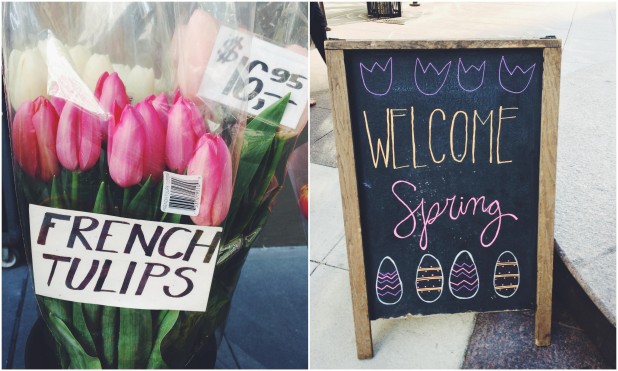 $16.95
16,-
FRENCH
TULIPS
WELCOME
Spring